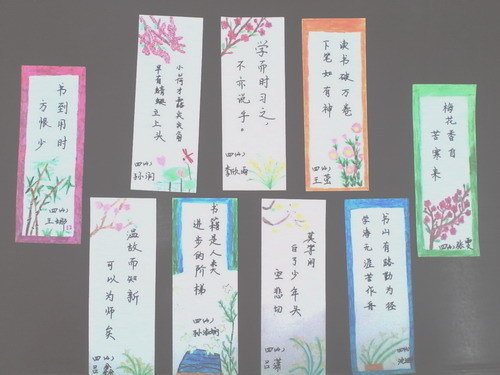 书到用时
方恨少
四(4)
王娜
小荷才露尖尖角
早有蜻蜓立上头
四(4)
学而时习之，
不亦说乎。
四(4)
李欣雨
读书破万卷
下笔如有神
四(4)
王莹
梅花香自
苦寒来
四(4)
温故而知新
可以为师矣
四(4)
书籍是人类
进步的阶梯
四(4)
莫等闲
白了少年头
空悲切
四(4)
书山有路勤为径
学海无涯苦作舟
四(4)